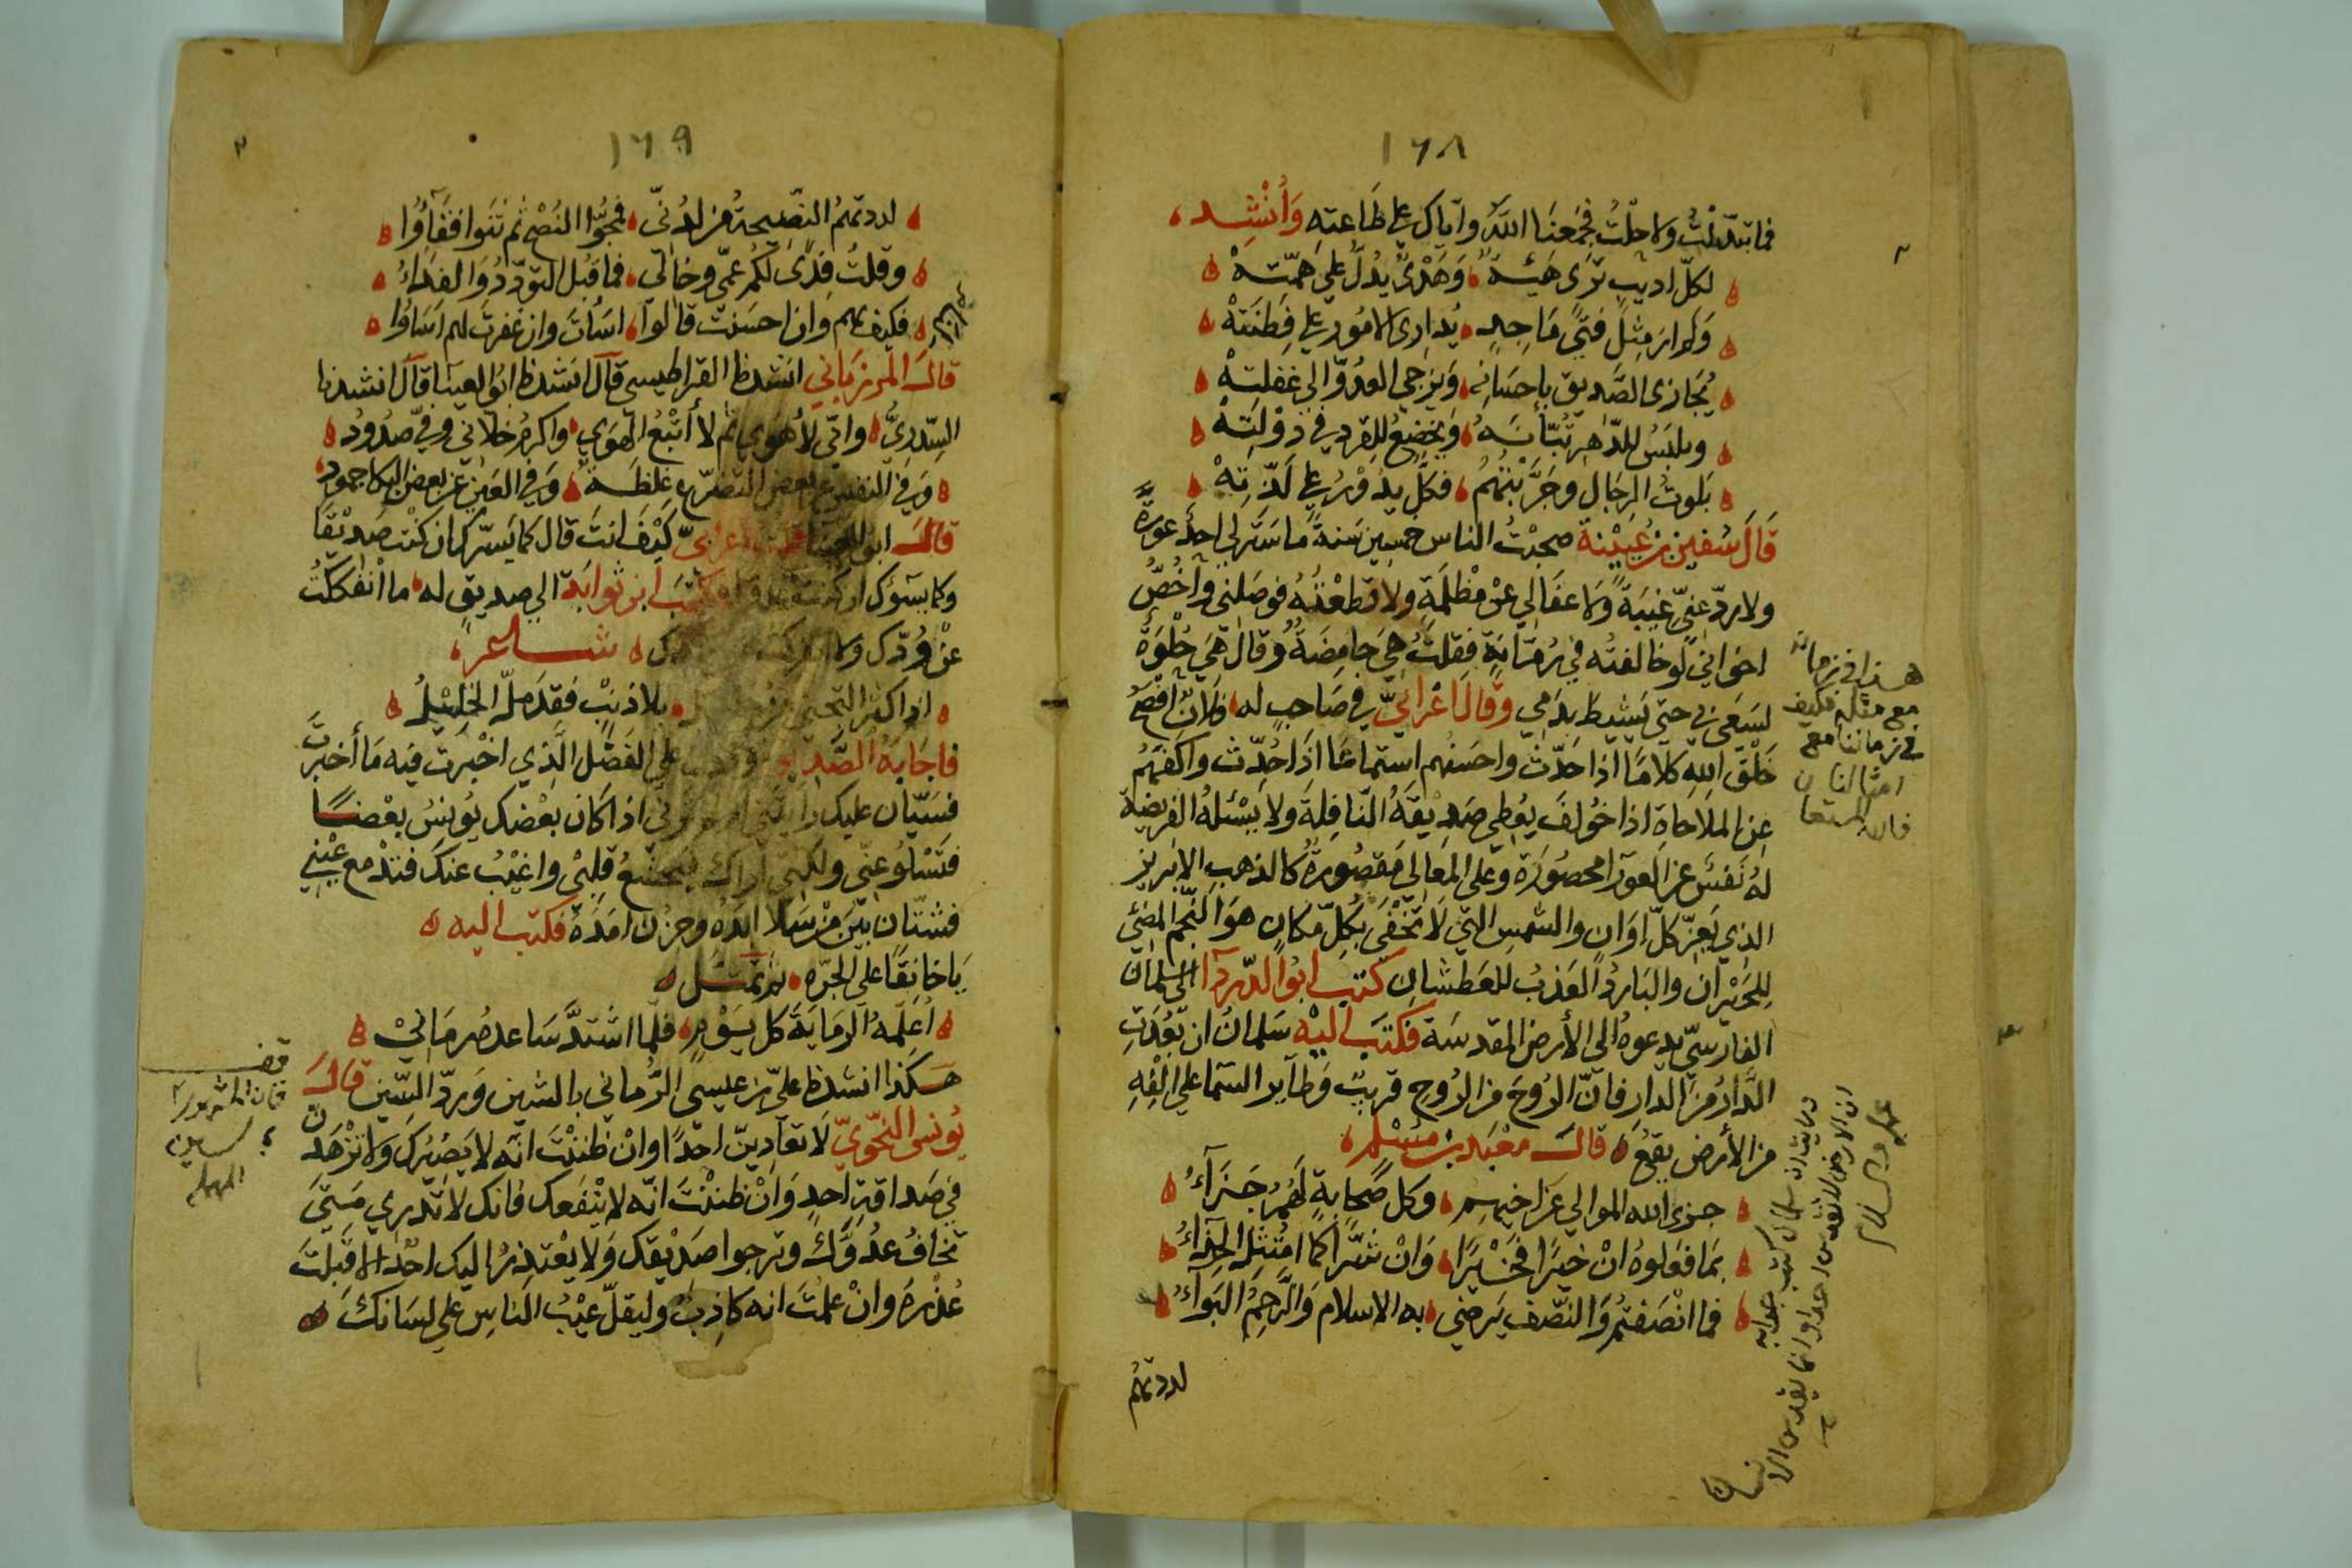 ١٦٨
فما تبدّلتُ ولا حلتُ فجمعنا اللّٰه وايّاك على طاعته وأنشد
لكلّ اديب ترى هيئة وهَدْىٌ يدُلّ على همّته
ولم ار مثل فتًى ماجد يُدارى الامُور على فِطنته
يُجازى الصَّديق باحسَانه ويزجى العدُوّ الى غفلته
ويلبَسُ للدّهر تُبّانَهُ ويخضع للقرد في دَوْلتِهْ
بَلوتُ الرجَال وجَرَّبْتُهُم فكلّ يدُوْرُ على لَذّتِهْ
قَالَ سُفين بن عُيَيْنة صحبْتُ الناس خمسين سَنةً ما سَتَر لي احدٌ عورةً
ولا ردّ عنّى غيبَةً ولا عفَا لي عنْ مظْلمَةٍ ولا قطعْتُهُ فوصَلني وأخَصُّ
اخواني لو خالفتُه في رُمّانَةٍ فقلتُ هِيَ حامِضَةٌ وقال هِيَ حُلْوَةٌ
لسَعَى بي حتى يَشيط بدَمي وقالَ اعْرَابيّ في صَاحبٍ له فلانٌ افْصَحُ
خَلْق اللهِ كلامًا اذا حَدّث واحسَنُهم استماعًا اذَا حُدّث واكفّهُم
عن المُلاحَاة اذا خُولف يُعطِي صَدِيْقَهُ النّافِلةَ ولا يَسْئلهُ الفريضة
لهُ نَفسٌ عن العورآ محصُورَة وعلى المَعالي مقصُورةٌ كالذهب الابريز
الذي يَعِزّ كلّ اوَان والشمس التي لا تَخْفَى بكلّ مكان هوَ النّجم المضئ
للحَيْرَان والبَاردُ العَذبُ للعَطشان كتب ابوُ الدّردآ الى سلمان
الفارسيّ يدعوهُ الى الأرض المقدسَة فكتبَ اليْه سَلمانُ ان بَعُدَتِ
الدَّارُ من الدار فانّ الرُوحَ من الرُوح قريبٌ وطآير السّما على الْفِهِ
من الأرض يقعُ قالَ معْبَد بن مسْلم
جزى الله الموالي عن اخيهم وكل صَحَابةٍ لهُمْ جَزَآءُ
بمَا فعَلوهُ انْ خيْرًا فخَيْرًا وَانْ شرًّا كما امْتُثِلَ الحِذَاءُ
فما انْصَفتُم وَالنّصف يَرضي به الاسلام وَالرَّحِمُ البَوآءُ
لددتهُم
هذا في زمانه
مع مثله فكيف
في زماننا مع
امثالنا
فالله المستعان
١٦٩
لددتهُمُ النّصيحَةَ من لدُنّى فمجُّوا النُصْح ثم ثَنَوا فقَآؤُا
وقلتُ فِدًى لكُم عَمّى وخالى فما قُبل التودّدُ وَالفدَاءُ
فكيف بهم وَان احسَنت قالوا اسَأتَ وان غَفرت لهم اسَاؤُا
قالَ المَرزبَاني انشدنا القراطيسي قآل انشدنا ابوُ العينا قآل انشدنا
السِّدرِيُّ وانّي لأهْوى ثم لا أتْبعُ الهَوَى واكرمُ خلاني وفيّ صدُودُ
وَفي النفس عن بعض التضرّع غلظَةٌ وَفي العَين عن بعض البكا جمود
قالَ ابو العينا قلت لاعرابيّ كيْفَ انتَ قال كما يَسرّك ان كنت صَديْقًا
وكما يسَوئك ان كنت عدوًا وكتبَ ابن ثوابَة الى صديقٍ له ما انفككتُ
عنْ وُدّك ولا شاعر
اذا كثر التجنى من خليل بلا ذنبٍ فقد ملّ الخليلُ
فاجَابهُ الصّديق على الفَضْل الّذي اخْبرت فيه مَا أخبرتَ
فسَيّان عليك رأيتني او لم ترني اذا كان بعْضك يُونسُ بعْضًا
فتَسْلوُ عنّى ولكني اراك فيخشعُ قلبْي واغيْبُ عنك فتدْمع عيْني
فشتّان بَيْنَ مَنْ سَلا ابدُه وحزن امَدُهُ فكتب اليه
يَاخانقًا على الجرّه ثم تمثّل
اُعَلّمهُ الرمَايَةَ كل يَوْمٍ فلمّا اشتدَّ سَاعدهُ رمَانيْ
هكذا انشدنا علىّ بن عيسى الرُّماني بالشين وَردّ السّين قالَ
يُونس النّحْوىّ لا تعَاديَنّ احَدًا وانْ ظننْتَ انّه لا يَضُرك ولا تزْهَدنّ
في صَداقة احدٍ وَانْ ظننْتَ انّه لا ينْفعك فانك لا تَدْرِي مَتيَ
تخافُ عدُوَّكَ وترجوا صَدْيقك وَلا يعْتذِرُ اليك احَدٌ الا قَبلتَ
عُذْرهُ وانْ علمْتَ انه كاذِبٌ وليقلّ عيْبُ النّاسِ على لسَانكَ
قف